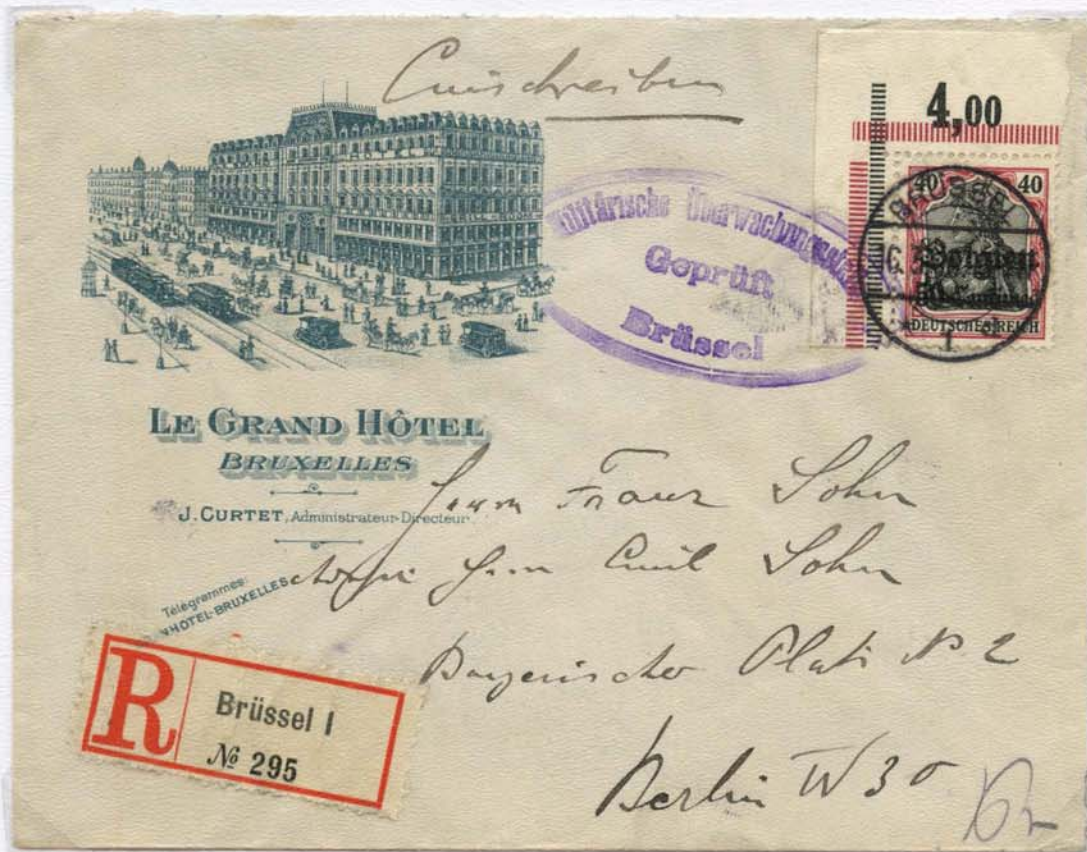 Einschreiben
4,00
40 40
Belgien
DEUTSCHES REICH
BRÜSSEL
1
Militärische Überwachungsstelle
Geprüft
Brüssel
LE GRAND HÔTEL
BRUXELLES
J. CURTET, Administrateur-Directeur
Télégrammes:
HOTEL-BRUXELLES
Herrn Franz Sohn
Herrn Emil Sohn
Bayerischer Platz No 2
Berlin W 30
R
Brüssel 1
№ 295